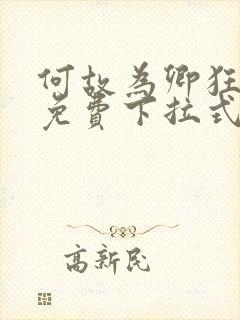 何故為卿狂
免費下拉式
高新民